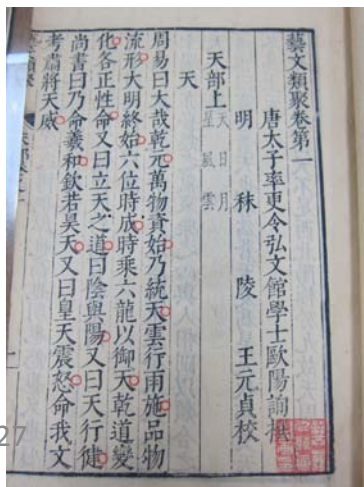 藝文類聚卷第一
唐太子率更令弘文館學士歐陽詢撰
明秣陵王元貞校
天部上
天日月
星風雲
天
周易曰大哉乾元萬物資始乃統天雲行雨施品物
流形大明終始六位時成時乘六龍以御天乾道變
化各正性命又曰立天之道曰陰與陽又曰天行健
尚書曰乃命羲和欽若昊天又曰皇天震怒命我文
考肅將天威
27